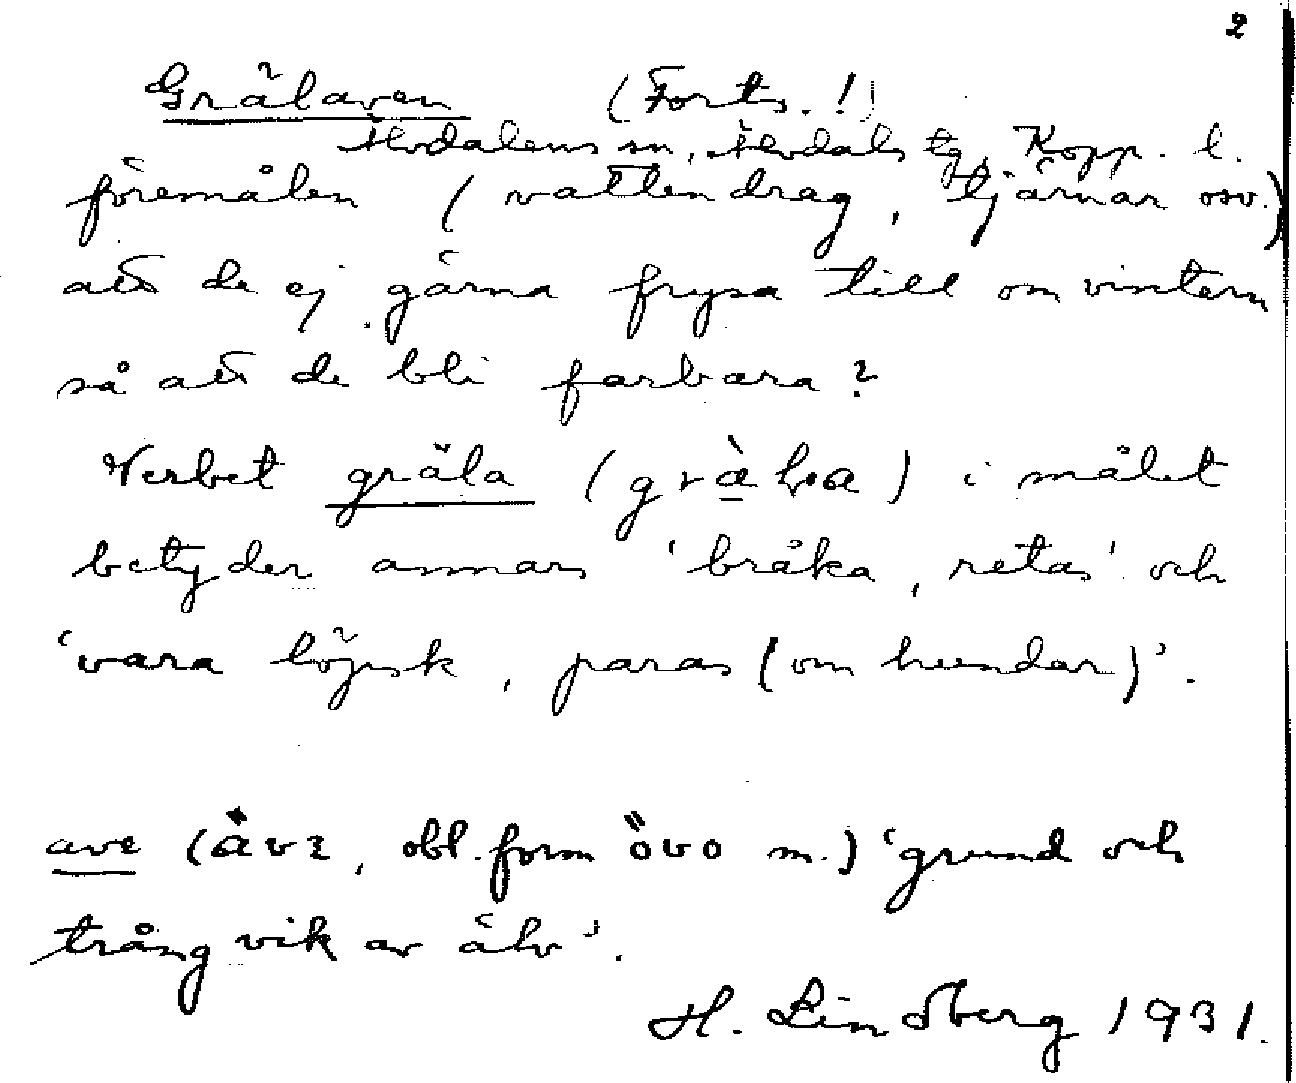 2
Grälaven (Forts.!)
Älvdalens sn, Älvdals tg, Kopp. l.
föremålen (vattendrag, tjärnar osv.)
att de ej gärna frysa till om vintern
så att de bli farbara?
Verbet gräla (grὰ̱ła) i målet
betyder annars 'bråka, retas' och
'vara löpsk, paras (om hundar)'.
ave (àvɛ, obl. form òvo m.) 'grund och
trång vik av älv'.
H. Lindberg 1931.